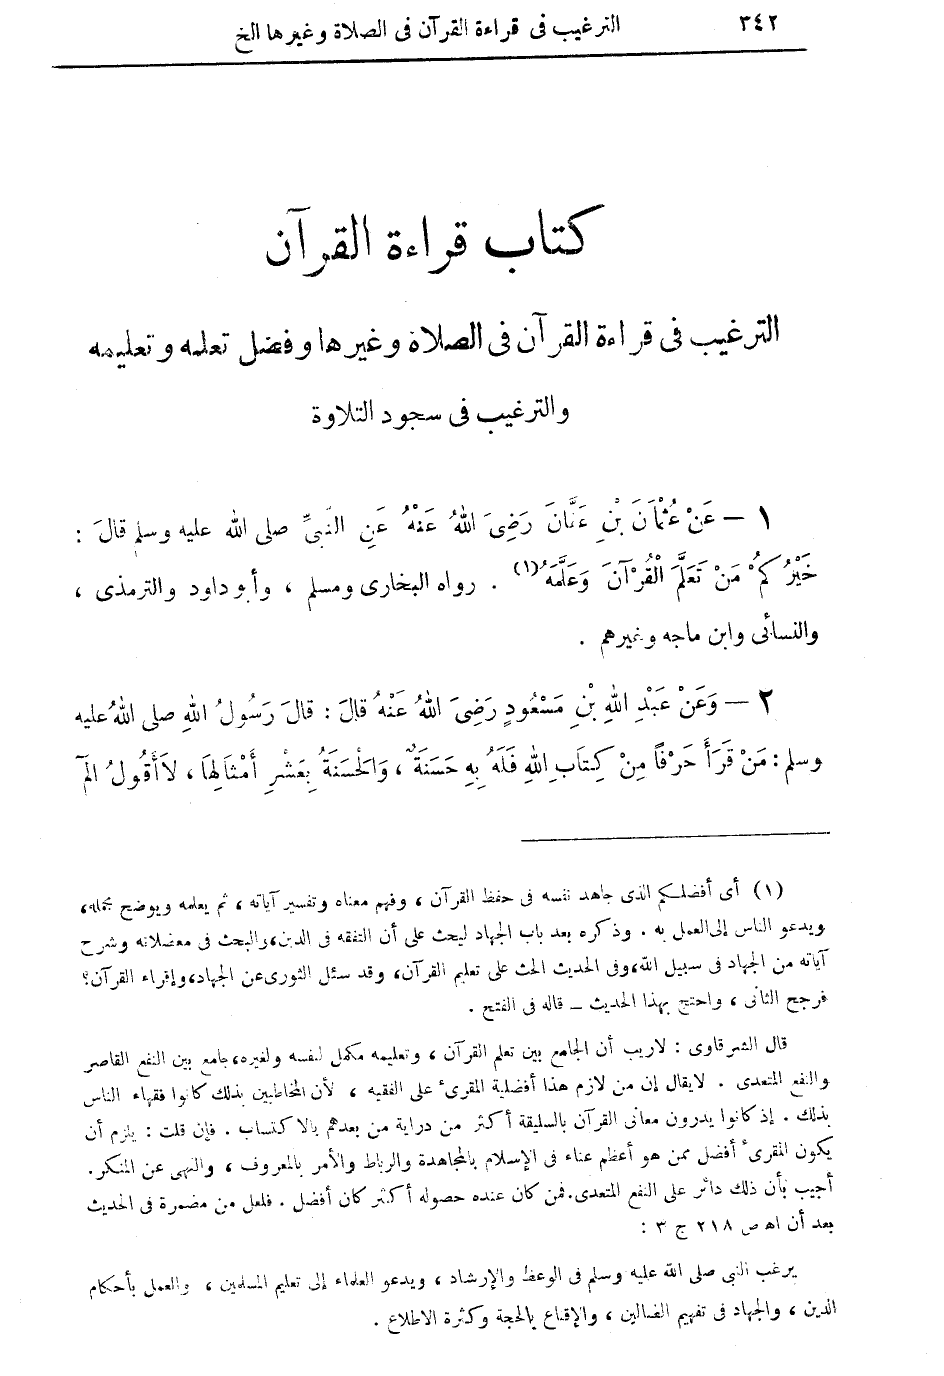 ٣٤٢ الترغيب فى قراءة القرآن فى الصلاة وغيرها الخ
كتاب قراءة القرآن
الترغيب فى قراءة القرآن فى الصلاة وغيرها وفضل تعلمه وتعليمه
والترغيب فى سجود التلاوة
١ – عَنْ عُثْمَانَ بْنِ عَفَّانَ رَضِىَ اللهُ عَنْهُ عَنِ النَّبِىِّ صلى الله عليه وسلم قالَ :
خَيْرُكُمْ مَنْ تَعَلَّمَ الْقُرْآنَ وَعَلَّمَهُ (١) . رواه البخارى ومسلم ، وأبو داود والترمذى ،
والنسائى وابن ماجه وغيرهم .
٢ – وَعَنْ عَبْدِ اللهِ بْنِ مَسْعُودٍ رَضِىَ اللهُ عَنْهُ قالَ : قالَ رَسُولُ اللهِ صلى اللهُ عليه
وسلم : مَنْ قَرَأَ حَرْفًا مِنْ كِتَابِ اللهِ فَلَهُ بِهِ حَسَنَةٌ ، وَالْحَسَنَةُ بِعَشْرِ أَمْثَالِهَا ، لاَ أَقُولُ الٓمٓ
(١) أى أفضلكم الذى جاهد نفسه فى حفظ القرآن ، وفهم معناه وتفسير آياته ، ثم يعلمه ويوضح مجمله ،
ويدعو الناس إلى العمل به . وذكره بعد باب الجهاد ليحث على أن التفقه فى الدين، والبحث فى معضلاته وشرح
آياته من الجهاد فى سبيل الله، وفى الحديث الحث على تعليم القرآن، وقد سئل الثورى عن الجهاد، وإقراء القرآن؟
فرجح الثانى ، واحتج بهذا الحديث – قاله فى الفتح .
قال الشرقاوى : لاريب أن الجامع بين تعلم القرآن ، وتعليمه مكمل لنفسه ولغيره، جامع بين النفع القاصر
والنفع المتعدى . لايقال إن من لازم هذا أفضلية المقرىء على الفقيه ، لأن المخاطبين بذلك كانوا فقهاء الناس
بذلك . إذ كانوا يدرون معانى القرآن بالسليقة أكثر من دراية من بعدهم بالاكتساب . فإن قلت : يلزم أن
يكون المقرىء أفضل ممن هو أعظم عناء فى الإسلام بالمجاهدة والرباط والأمر بالمعروف ، والنهى عن المنكر .
أجيب بأن ذلك دائر على النفع المتعدى. فمن كان عنده حصوله أكثر كان أفضل . فلعل من مضمرة فى الحديث
بعد أن اه ص ٢١٨ ج ٣ :
يرغب النبى صلى الله عليه وسلم فى الوعظ والإرشاد ، ويدعو العلماء إلى تعليم المسلمين ، والعمل بأحكام
الدين ، والجهاد فى تفهيم الضالين ، والإقناع بالحجة وكثرة الاطلاع .